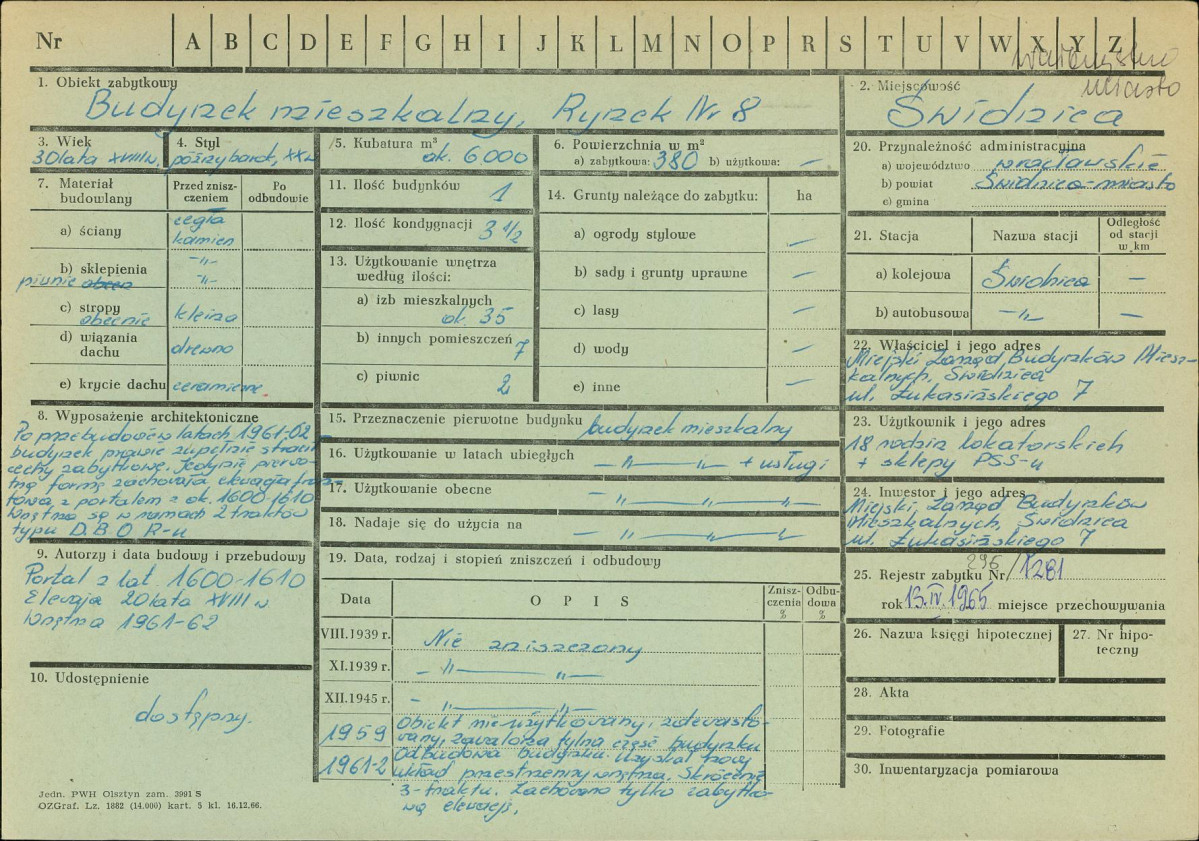 Nr A B C D E F G H I J K L M N O P R S T U V W X Y Z
miasto
1. Obiekt zabytkowy
Budynek mieszkalny, Rynek Nr 8
2. Miejscowość
Świdnica
3. Wiek
30 lata XVIII w.
4. Styl
późny barok, XX w
5. Kubatura m³
ok. 6000
6. Powierzchnia w m²
a) zabytkowa: 380 b) użytkowa: —
20. Przynależność administracyjna
a) województwo wrocławskie
b) powiat Świdnica-miasto
c) gmina
7. Materiał budowlany
Przed zniszczeniem
Po odbudowie
a) ściany cegła
kamień
b) sklepienia -"-
piwnic -"-
c) stropy
obecnie kleina
d) wiązania
dachu drewno
e) krycie dachu ceramiczne
11. Ilość budynków 1
12. Ilość kondygnacji 3 1/2
13. Użytkowanie wnętrza
według ilości:
a) izb mieszkalnych
ok. 35
b) innych pomieszczeń 7
c) piwnic 2
14. Grunty należące do zabytku: ha
a) ogrody stylowe —
b) sady i grunty uprawne —
c) lasy —
d) wody —
e) inne —
21. Stacja
Nazwa stacji
Odległość
od stacji
w km
a) kolejowa Świdnica —
b) autobusowa -"- —
22. Właściciel i jego adres
Miejski Zarząd Budynków Miesz-
kalnych, Świdnica
ul. Łukasińskiego 7
8. Wyposażenie architektoniczne
Po przebudowie w latach 1961-62
budynek prawie zupełnie stracił
cechy zabytkowe. Jedynie pierwo-
tną formę zachowała elewacja fron-
towa z portalem z ok. 1600-1610
Wnętrza są w ramach 2 traktów
typu D.B.O.R-u
15. Przeznaczenie pierwotne budynku budynek mieszkalny
16. Użytkowanie w latach ubiegłych -"- -"- + usługi
17. Użytkowanie obecne -"- -"-
18. Nadaje się do użycia na -"- -"-
23. Użytkownik i jego adres
18 rodzin lokatorskich
+ sklepy PSS-u
24. Inwestor i jego adres
Miejski Zarząd Budynków
Mieszkalnych, Świdnica
ul. Łukasińskiego 7
9. Autorzy i data budowy i przebudowy
Portal z lat 1600-1610
Elewacja 20 lata XVIII w
Wnętrza 1961-62
19. Data, rodzaj i stopień zniszczeń i odbudowy
Data
O P I S
Zniszczenia %
Odbudowa %
VIII.1939 r. Nie zniszczony
XI.1939 r. -"- -"-
XII.1945 r. -"- -"-
1959 Obiekt nieużytkowany, zdewasto-
wany, zawalona tylna część budynku
1961-2 Odbudowa budynku. Uzyskał nowy
układ przestrzenny wnętrza. Skrócenie
3-traktu. Zachowano tylko zabytko-
wą elewację.
25. Rejestr zabytku Nr 296/1281
rok 13.IV.1965 miejsce przechowywania
26. Nazwa księgi hipotecznej
27. Nr hipo-
teczny
10. Udostępnienie
dostępny.
28. Akta
29. Fotografie
30. Inwentaryzacja pomiarowa
Jedn. PWH Olsztyn zam. 3991 S
OZGraf. Lz. 1882 (14.000) kart. 5 kl. 16.12.66.